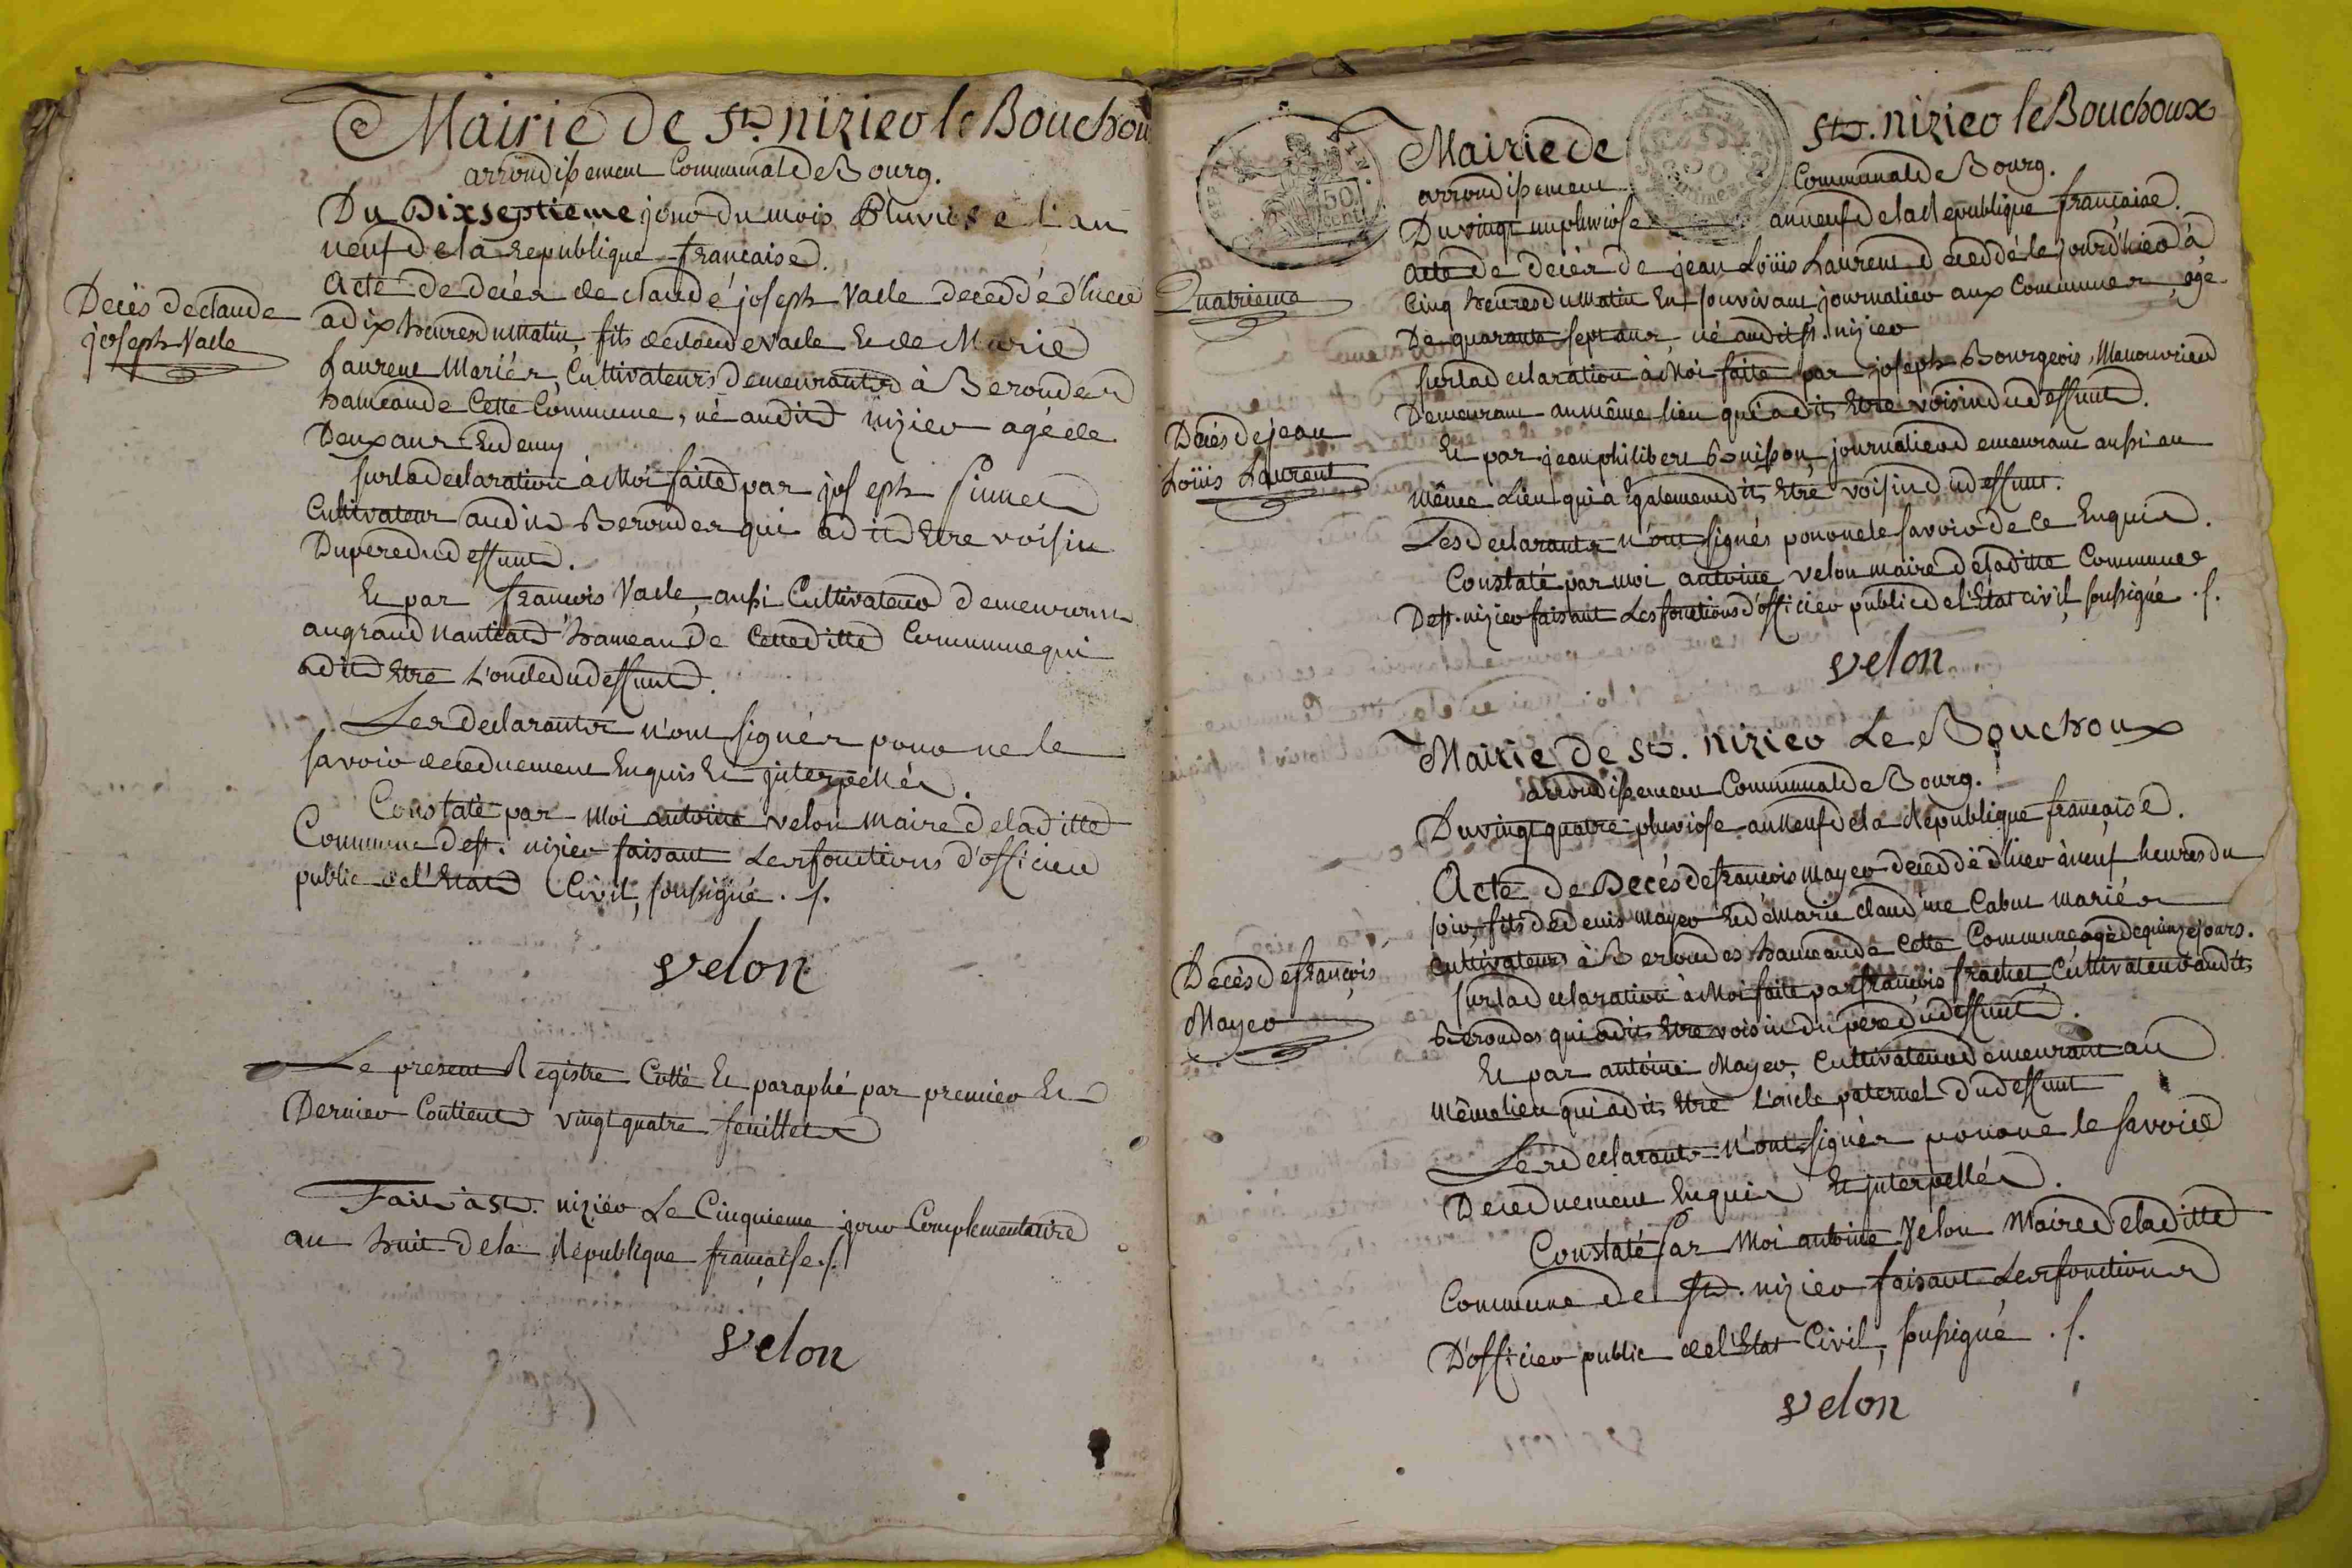 Mairie de St. nizier le Bouchou
arrondissement Communal de Bourg.
Du Dixseptieme jour du mois Pluviose l'an
neuf de la Republique francaise.
Acte de decés de claude joseph Vacle decedé d'hier
a dix heures du matin, fils de claude Vacle Et de Marie
Laurent Mariés, Cultivateurs demeurants à Berondes
hameau de Cette Commune, né audit nizier agé de
Deux ans Et demy
Decès de claude
joseph Vacle
sur la declaration à Moi faite par joseph
Cultivateur audit Berondes qui a dit Etre voisin
Du pere du deffunt.
Et par francois Vacle, aussi Cultivateur demeurant
au grand Nanticat hameau de Cette ditte Commune qui
a dit Etre L'oncle du deffunt.
Les declarants n'ont signés pour ne le
savoir de ce duement Enquis Et interpellés.
Constaté par Moi antoine velon Maire de la ditte
Commune de st. nizier faisant Les fonctions d'officier
public de l'Etat Civil, soussigné ./.
velon
Le present Registre Cotté Et paraphé par premier Et
Dernier Contient vingt quatre feuillets
Fait à St. nizier Le Cinquieme jour Complementaire
an huit de la République francaise ./.
velon
Mairie de St. nizier le Bouchoux
arrondissement Communal de Bourg.
Du vingt un pluviose an neuf de la Republique francaise.
Quatrieme
Acte de decés de jean Loüis Laurent decedé le jour d'hier à
Cinq heures du matin En son vivant journalier aux Communes, agé
De quarante sept ans, né audit st. nizier
sur la declaration à Moi faite par joseph Bourgeois, Manouvrier
Demeurant au même lieu qui a dit Etre voisin du deffunt.
Decés de jean
Loüis Laurent
Et par jean philibert Buisson, journalier demeurant aussi au
même Lieu qui a Egalement dit Etre voisin du deffunt.
Les declarants n'ont signés pour ne le savoir de ce Enquis.
Constaté par moi antoine velon maire de la ditte Commune
De st. nizier faisant Les fonctions d'officier public de l'Etat civil soussigné ./.
velon
Mairie de St. nizier Le Bouchoux
arrondissement Communal de Bourg.
Du vingt quatre pluviose an Neuf de la République française.
Acte de Decés de francois mayer decedé d'hier à neuf heures du
soir, fils de denis mayer Et de Marie claudine Cabut mariés
Cultivateurs à Berondes hameau de Cette Commune agé de quinze jours.
Décès de françois
Mayer
sur la declaration à Moi faite par françois frachet, Cultivateur audit
Berondes qui a dit Etre voisin du pere du deffunt.
Et par antoine Mayer, Cultivateur demeurant au
même lieu qui a dit Etre L'aiele paternel du deffunt
Les declarants n'ont signés pour ne le savoir
De ce duement Enquis Et interpellés.
Constaté Par Moi antoine Velon Maire de la ditte
Commune de St. nizier faisant Les fonctions
D'officier public de l'Etat Civil, soussigné ./.
velon